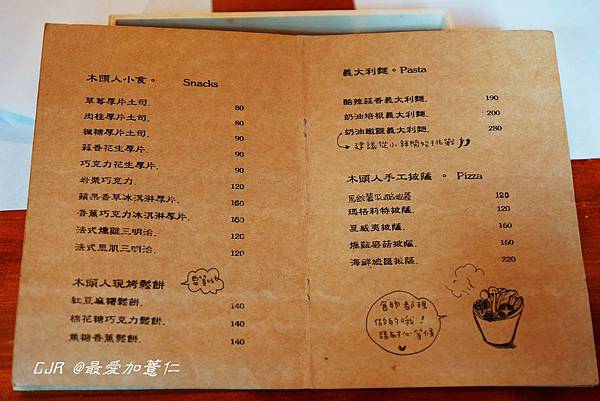 木頭人小食。 Snacks
草莓厚片土司. 80
肉桂厚片土司. 80
楓糖厚片土司. 90
蒜香花生厚片. 90
巧克力花生厚片. 90
岩漿巧克力. 120
蘋果香草冰淇淋厚片. 160
香蕉巧克力冰淇淋厚片. 160
法式燻雞三明治. 120
法式里肌三明治. 120
木頭人現烤鬆餅
紅豆麻糬鬆餅. 140
棉花糖巧克力鬆餅. 140
焦糖香蕉鬆餅. 140
義大利麵。Pasta
酷辣蒜香義大利麵. 190
奶油培根義大利麵. 200
奶油嫩雞義大利麵. 280
木頭人手工披薩 。 Pizza
120
瑪格莉特披薩. 120
夏威夷披薩. 160
燻雞蘑菇披薩. 160
海鮮總匯披薩. 220
食物都是現
做的哦！
請耐心等候
GJR @最愛加薏仁